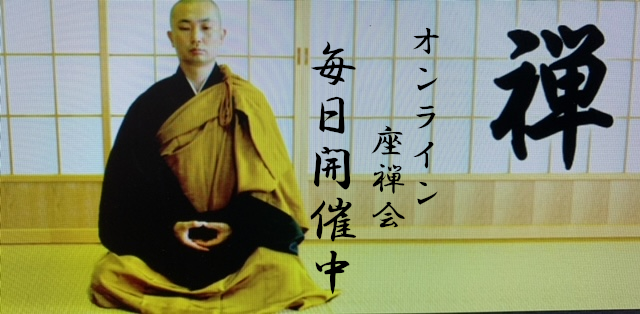 禅
オンライン
座禅会
毎日開催中